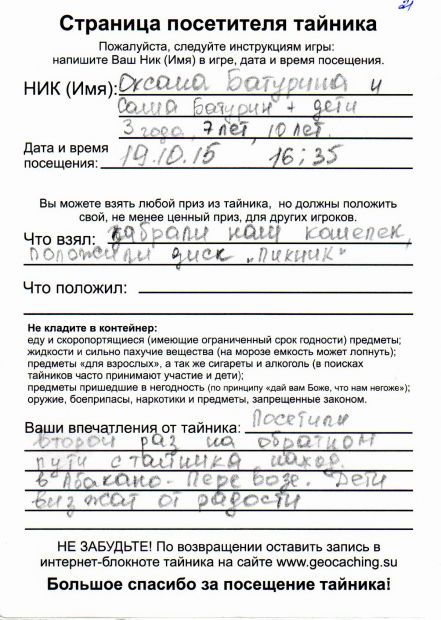 21
Страница посетителя тайника
Пожалуйста, следуйте инструкциям игры:
напишите Ваш Ник (Имя) в игре, дата и время посещения.
НИК (Имя): Оксана Батурина и
Саша Батурин + дети
3 года, 7 лет, 10 лет.
Дата и время
посещения: 19.10.15 16:35
Вы можете взять любой приз из тайника, но должны положить
свой, не менее ценный приз, для других игроков.
Что взял: забрали наш кошелек,
положили диск „Пикник“
Что положил:
Не кладите в контейнер:
еду и скоропортящиеся (имеющие ограниченный срок годности) предметы;
жидкости и сильно пахучие вещества (на морозе емкость может лопнуть);
предметы «для взрослых», а так же сигареты и алкоголь (в поисках
тайников часто принимают участие и дети);
предметы пришедшие в негодность (по принципу «дай вам Боже, что нам негоже»);
оружие, боеприпасы, наркотики и предметы, запрещенные законом.
Ваши впечатления от тайника: Посетили
второй раз на обратном
пути с тайника наход.
в Абакано-Перевозе. Дети
визжат от радости
НЕ ЗАБУДЬТЕ! По возвращении оставить запись в
интернет-блокноте тайника на сайте www.geocaching.su
Большое спасибо за посещение тайника!